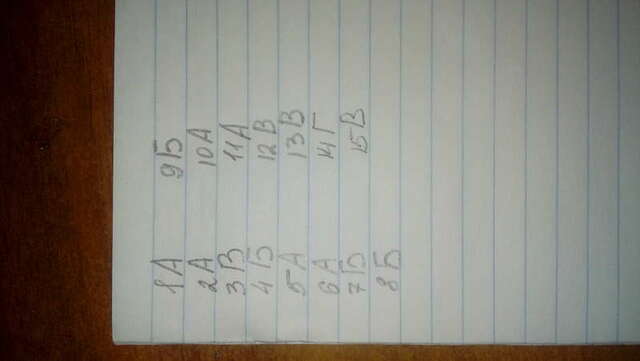 1А
2А
3В
4Б
5А
6А
7Б
8Б
9Б
10А
11А
12В
13В
14Г
15В